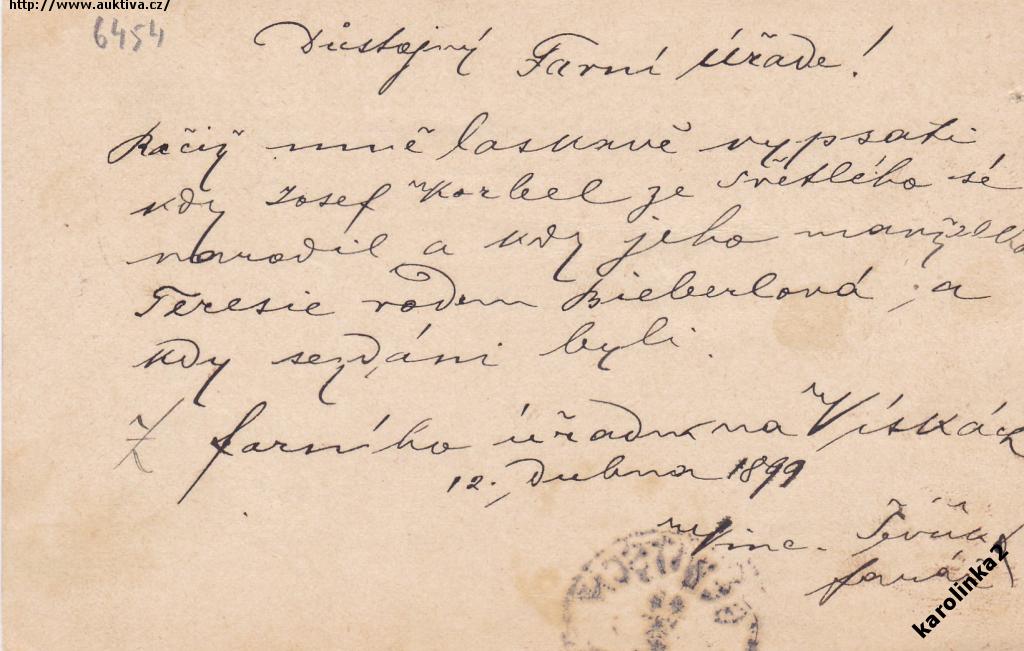 http://www.auktiva.cz/
6454
Důstojný Farní úřade!
Račiž mně laskavě vypsati
kdy Josef Korbel ze Světlého se
narodil a kdy jeho manželka
Teresie rodem Bieberlová, a
kdy sezdáni byli.
Z farního úřadu na Vískách
12. Dubna 1899
Vinc.
farář
karolinka2